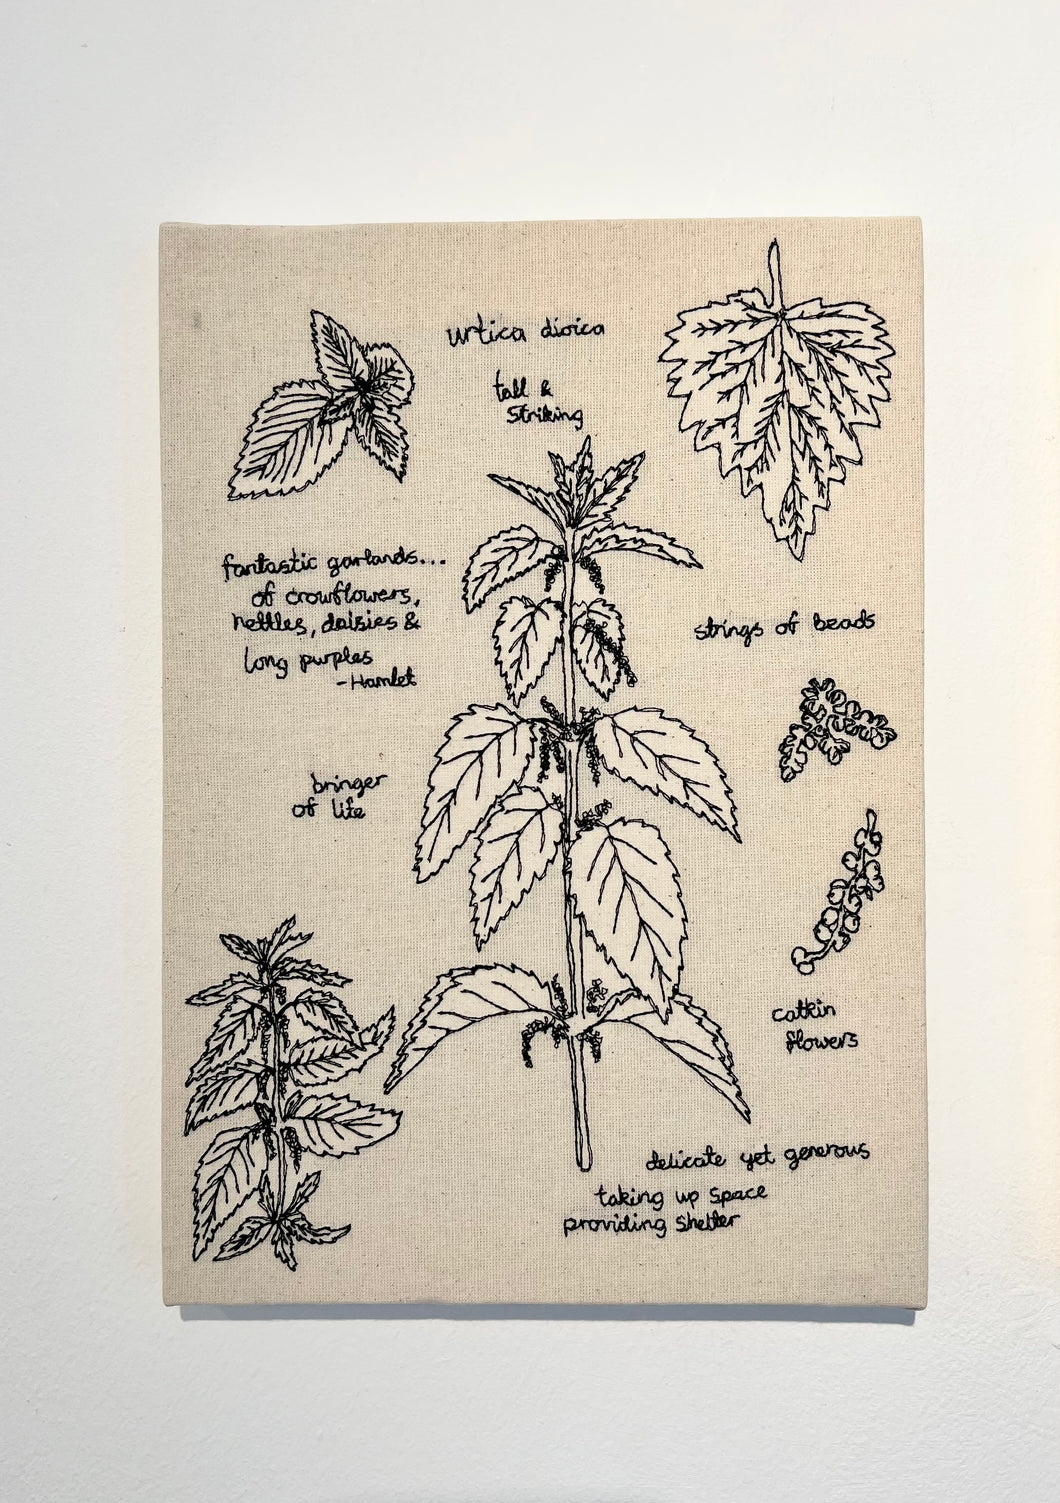 urtica dioica
tall &
striking
fantastic garlands...
of crowflowers,
nettles, daisies &
long purples
-Hamlet
strings of beads
bringer
of life
catkin
flowers
delicate yet generous
taking up space
providing shelter